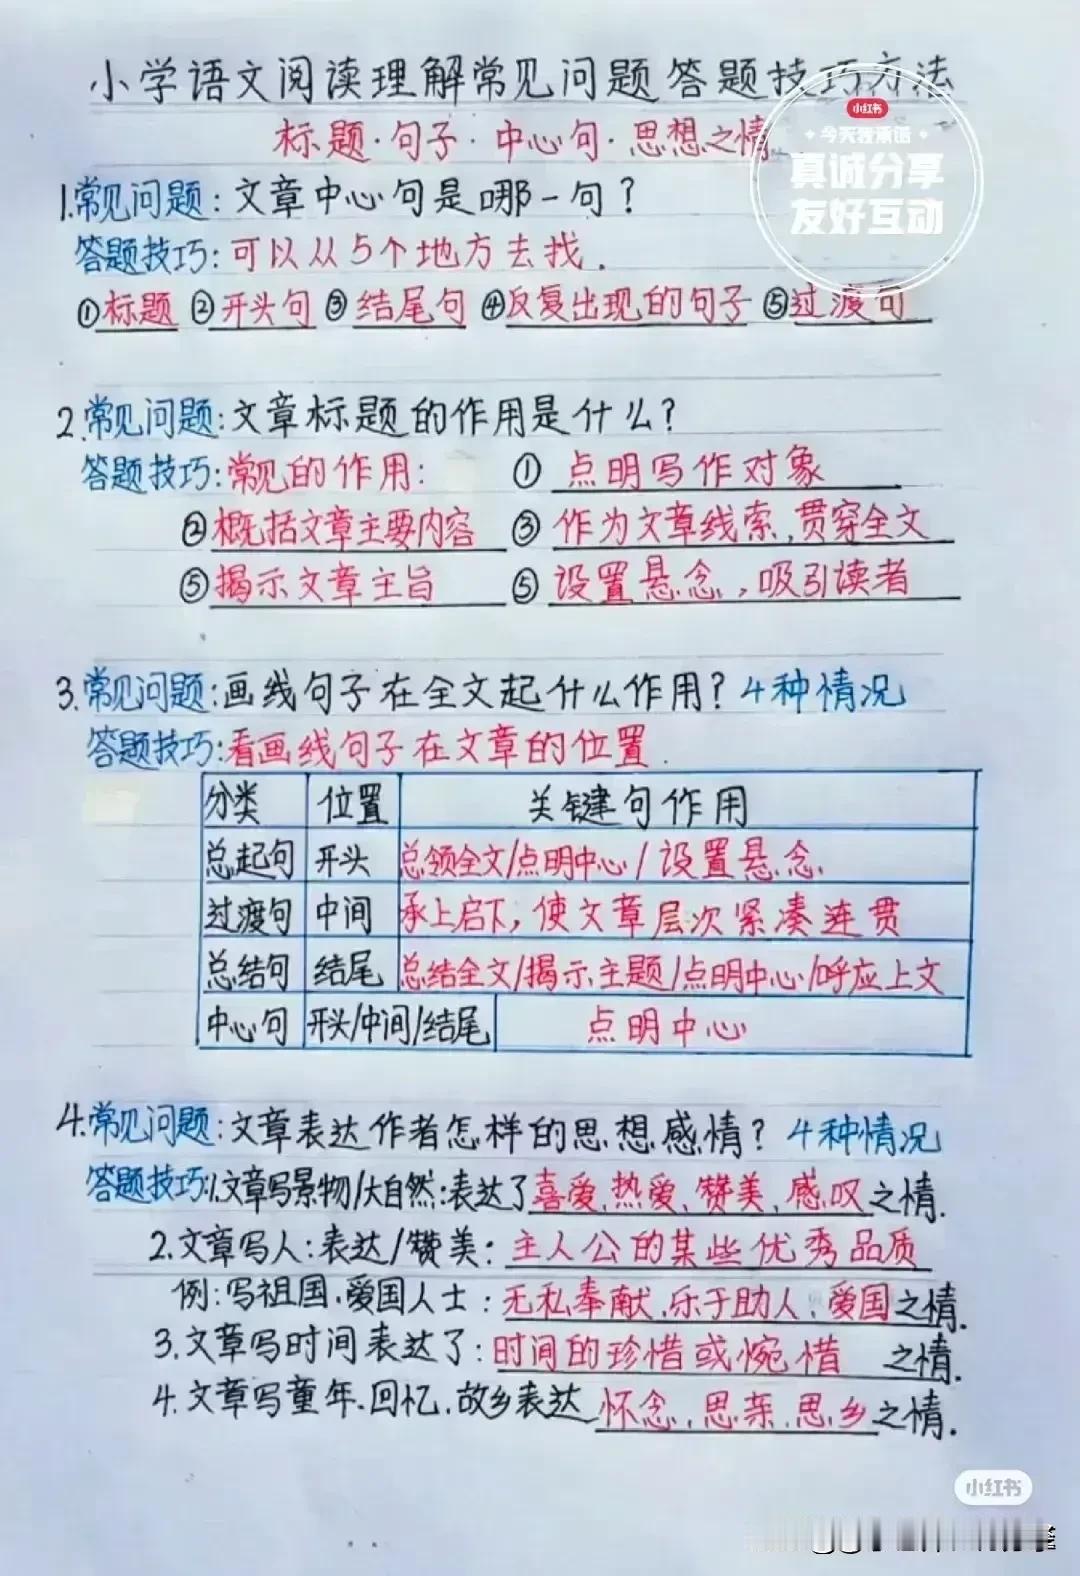 小学语文阅读理解常见问题答题技巧方法
标题·句子·中心句·思想之情
小红书
今天我承诺
真诚分享
友好互动
1.常见问题:文章中心句是哪一句?
答题技巧:可以从5个地方去找.
①标题 ②开头句 ③结尾句 ④反复出现的句子 ⑤过渡句
2.常见问题:文章标题的作用是什么?
答题技巧:常见的作用: ① 点明写作对象
②概括文章主要内容 ③ 作为文章线索,贯穿全文
⑤揭示文章主旨 ⑤ 设置悬念,吸引读者
3.常见问题:画线句子在全文起什么作用? 4种情况
答题技巧:看画线句子在文章的位置.
分类 位置 关键句作用
总起句 开头 总领全文/点明中心/设置悬念
过渡句 中间 承上启下,使文章层次紧凑连贯
总结句 结尾 总结全文/揭示主题/点明中心/呼应上文
中心句 开头/中间/结尾 点明中心
4.常见问题:文章表达作者怎样的思想感情? 4种情况
答题技巧:1.文章写景物/大自然:表达了喜爱、热爱、赞美、感叹之情.
2.文章写人:表达/赞美:主人公的某些优秀品质
例:写祖国.爱国人士:无私奉献.乐于助人、爱国之情.
3.文章写时间表达了:时间的珍惜或惋惜 之情.
4.文章写童年.回忆.故乡表达 怀念.思亲.思乡之情.
小红书